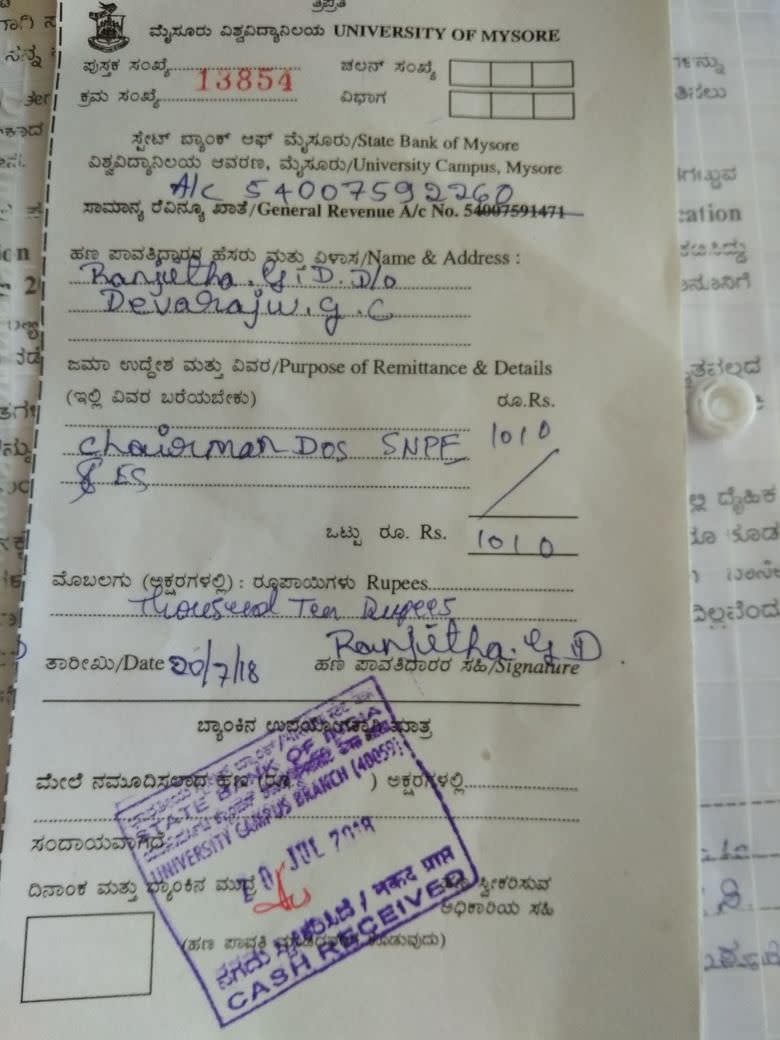 ತ್ರಿಪ್ರತಿ
ಮೈಸೂರು ವಿಶ್ವವಿದ್ಯಾನಿಲಯ UNIVERSITY OF MYSORE
ಪುಸ್ತಕ ಸಂಖ್ಯೆ
13854
ಚಲನ್ ಸಂಖ್ಯೆ
ಕ್ರಮ ಸಂಖ್ಯೆ
ವಿಭಾಗ
ಸ್ಟೇಟ್ ಬ್ಯಾಂಕ್ ಆಫ್ ಮೈಸೂರು/State Bank of Mysore
ವಿಶ್ವವಿದ್ಯಾನಿಲಯ ಆವರಣ, ಮೈಸೂರು/University Campus, Mysore
A/C 54007592260
ಸಾಮಾನ್ಯ ರೆವಿನ್ಯೂ ಖಾತೆ/General Revenue A/c No. 54007591471
ಹಣ ಪಾವತಿದಾರರ ಹೆಸರು ಮತ್ತು ವಿಳಾಸ/Name & Address :
Ranjitha. G. D. D/o
Devaraju. G. C
ಜಮಾ ಉದ್ದೇಶ ಮತ್ತು ವಿವರ/Purpose of Remittance & Details
(ಇಲ್ಲಿ ವಿವರ ಬರೆಯಬೇಕು) ರೂ.Rs.
Chairman DOS SNPE 1010
& ES
ಒಟ್ಟು ರೂ. Rs. 1010
ಮೊಬಲಗು (ಅಕ್ಷರಗಳಲ್ಲಿ) : ರೂಪಾಯಿಗಳು Rupees
Thousend Ten Rupees
Ranjitha. G. D.
ತಾರೀಖು/Date 20/7/18 ಹಣ ಪಾವತಿದಾರರ ಸಹಿ/Signature
ಬ್ಯಾಂಕಿನ ಉಪಯೋಗಕ್ಕಾಗಿ ಮಾತ್ರ
STATE BANK OF INDIA
ಮೇಲೆ ನಮೂದಿಸಲಾದ ಹಣ (ರೂ. ) ಅಕ್ಷರಗಳಲ್ಲಿ
UNIVERSITY CAMPUS BRANCH (40059)
ಸಂದಾಯವಾಗಿದೆ
20 JUL 2018
ದಿನಾಂಕ ಮತ್ತು ಬ್ಯಾಂಕಿನ ಮುದ್ರೆ ಸ್ವೀಕರಿಸುವ
ಅಧಿಕಾರಿಯ ಸಹಿ
ನಗದು ಸ್ವೀಕರಿಸಿದೆ / नकद प्राप्त
CASH RECEIVED